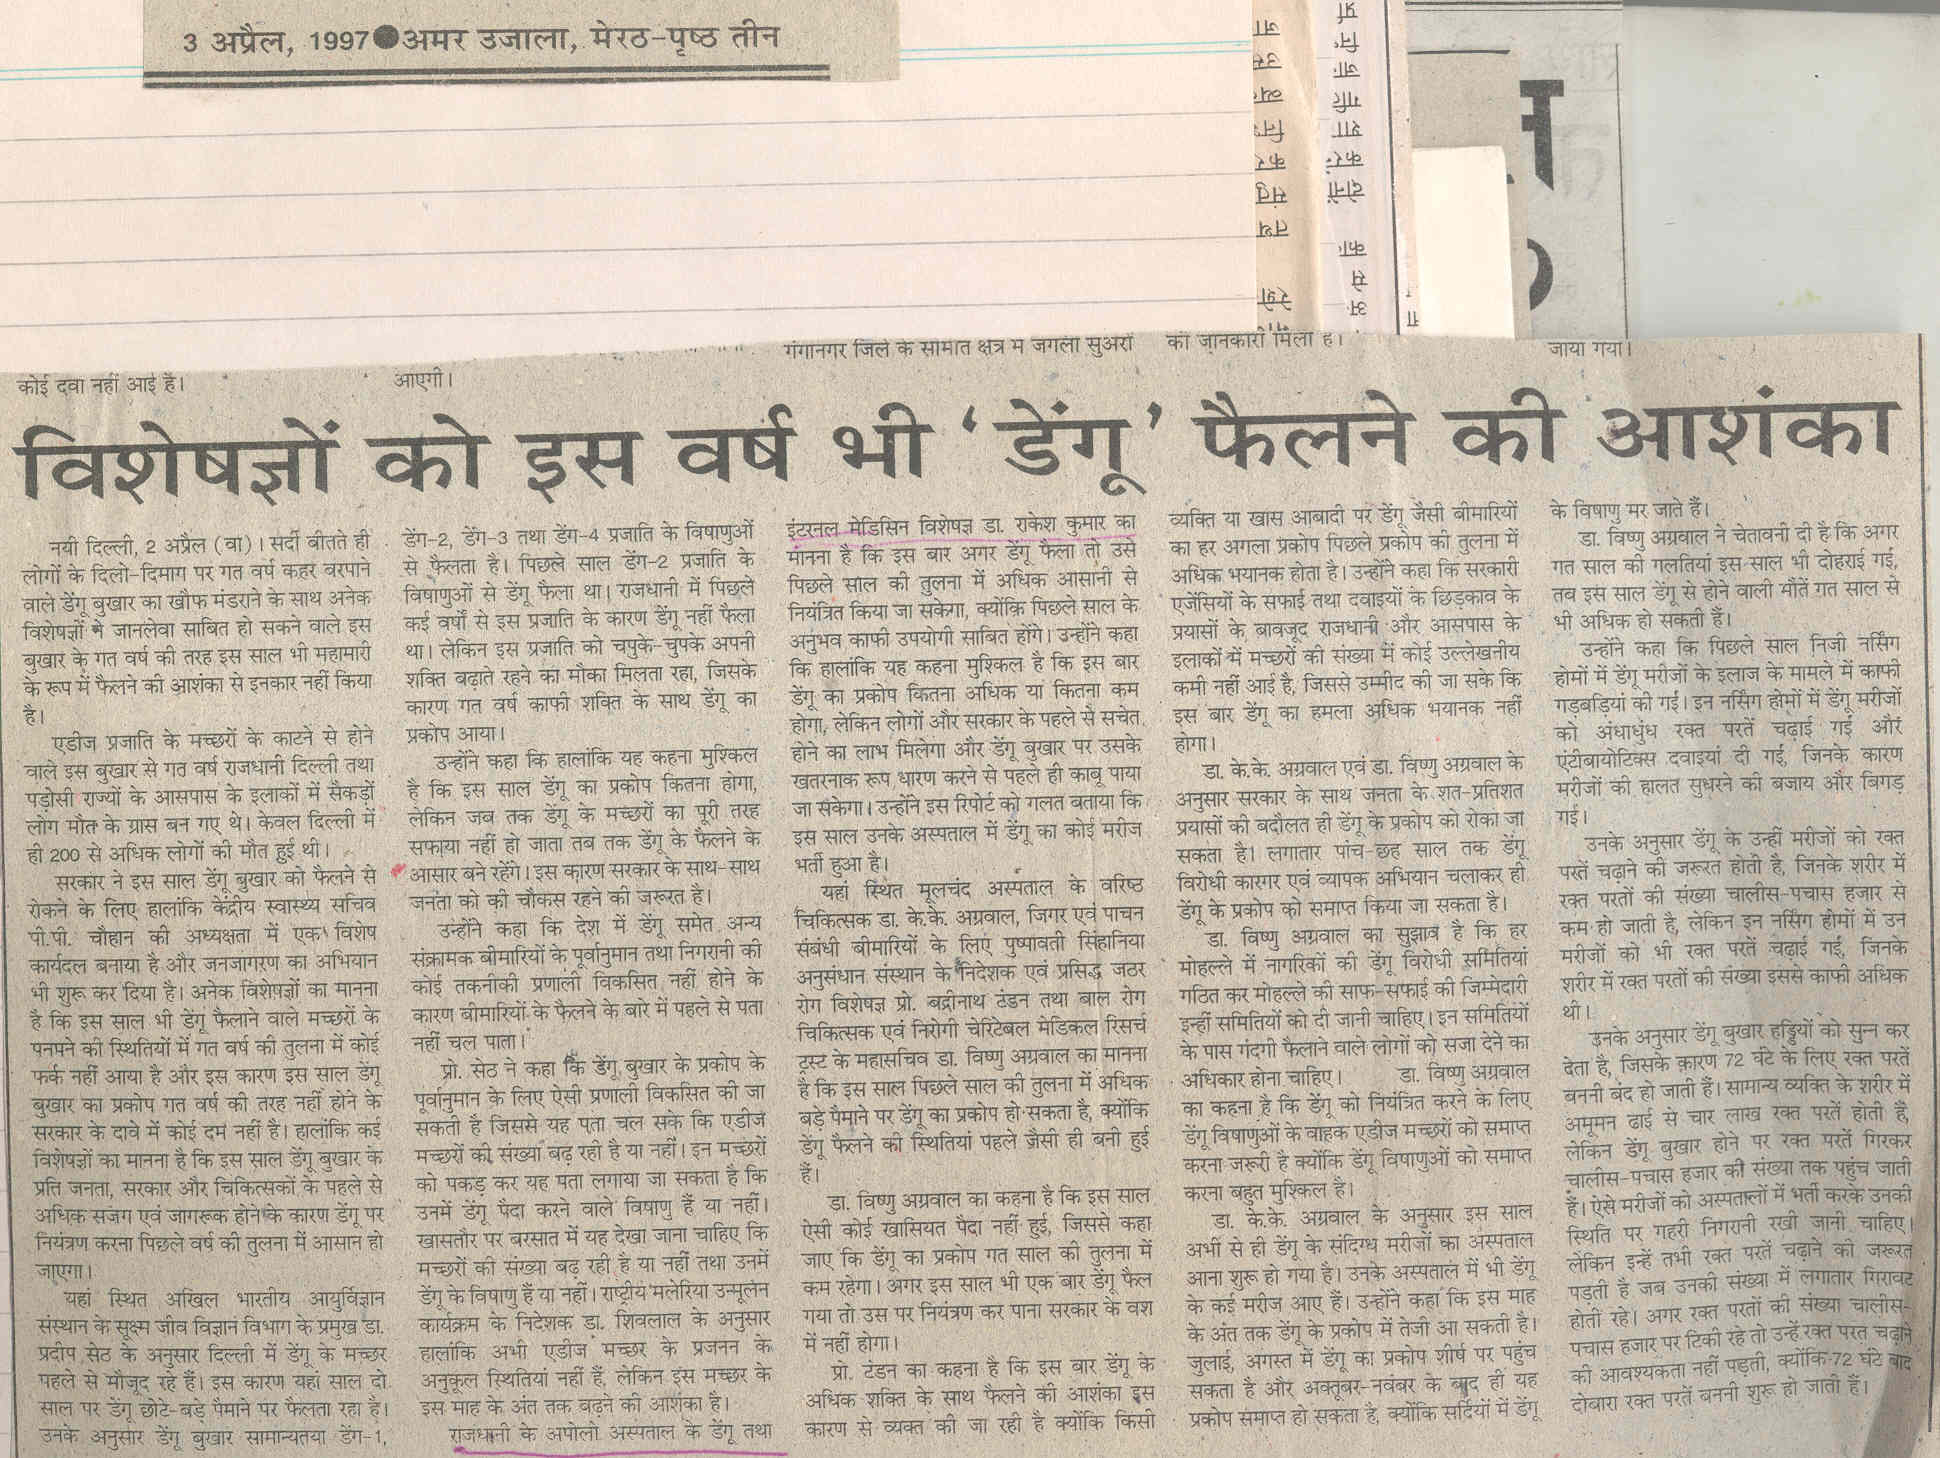 3 अप्रैल, 1997●अमर उजाला, मेरठ-पृष्ठ तीन
कोई दवा नहीं आई है।
आएगी।
गंगानगर जिले के सीमांत क्षेत्र में जंगली सुअरों
की जानकारी मिली है।
जाया गया।
विशेषज्ञों को इस वर्ष भी ‘डेंगू’ फैलने की आशंका
नयी दिल्ली, 2 अप्रैल (वा)। सर्दी बीतते ही
लोगों के दिलो-दिमाग पर गत वर्ष कहर बरपाने
वाले डेंगू बुखार का खौफ मंडराने के साथ अनेक
विशेषज्ञों ने जानलेवा साबित हो सकने वाले इस
बुखार के गत वर्ष की तरह इस साल भी महामारी
के रूप में फैलने की आशंका से इनकार नहीं किया
है।
एडीज प्रजाति के मच्छरों के काटने से होने
वाले इस बुखार से गत वर्ष राजधानी दिल्ली तथा
पड़ोसी राज्यों के आसपास के इलाकों में सैकड़ों
लोग मौत के ग्रास बन गए थे। केवल दिल्ली में
ही 200 से अधिक लोगों की मौत हुई थी।
सरकार ने इस साल डेंगू बुखार को फैलने से
रोकने के लिए हालांकि केंद्रीय स्वास्थ्य सचिव
पी.पी. चौहान की अध्यक्षता में एक विशेष
कार्यदल बनाया है और जनजागरण का अभियान
भी शुरू कर दिया है। अनेक विशेषज्ञों का मानना
है कि इस साल भी डेंगू फैलाने वाले मच्छरों के
पनपने की स्थितियों में गत वर्ष की तुलना में कोई
फर्क नहीं आया है और इस कारण इस साल डेंगू
बुखार का प्रकोप गत वर्ष की तरह नहीं होने के
सरकार के दावे में कोई दम नहीं है। हालांकि कई
विशेषज्ञों का मानना है कि इस साल डेंगू बुखार के
प्रति जनता, सरकार और चिकित्सकों के पहले से
अधिक सजग एवं जागरूक होने के कारण डेंगू पर
नियंत्रण करना पिछले वर्ष की तुलना में आसान हो
जाएगा।
यहां स्थित अखिल भारतीय आयुर्विज्ञान
संस्थान के सूक्ष्म जीव विज्ञान विभाग के प्रमुख डा.
प्रदीप सेठ के अनुसार दिल्ली में डेंगू के मच्छर
पहले से मौजूद रहे हैं। इस कारण यहां साल दो
साल पर डेंगू छोटे-बड़े पैमाने पर फैलता रहा है।
उनके अनुसार डेंगू बुखार सामान्यतया डेंग-1,
डेंग-2, डेंग-3 तथा डेंग-4 प्रजाति के विषाणुओं
से फैलता है। पिछले साल डेंग-2 प्रजाति के
विषाणुओं से डेंगू फैला था। राजधानी में पिछले
कई वर्षों से इस प्रजाति के कारण डेंगू नहीं फैला
था। लेकिन इस प्रजाति को चपुके-चुपके अपनी
शक्ति बढ़ाते रहने का मौका मिलता रहा, जिसके
कारण गत वर्ष काफी शक्ति के साथ डेंगू का
प्रकोप आया।
उन्होंने कहा कि हालांकि यह कहना मुश्किल
है कि इस साल डेंगू का प्रकोप कितना होगा,
लेकिन जब तक डेंगू के मच्छरों का पूरी तरह
सफाया नहीं हो जाता तब तक डेंगू के फैलने के
आसार बने रहेंगे। इस कारण सरकार के साथ-साथ
जनता को की चौकस रहने की जरूरत है।
उन्होंने कहा कि देश में डेंगू समेत अन्य
संक्रामक बीमारियों के पूर्वानुमान तथा निगरानी की
कोई तकनीकी प्रणाली विकसित नहीं होने के
कारण बीमारियों के फैलने के बारे में पहले से पता
नहीं चल पाता।
प्रो. सेठ ने कहा कि डेंगू बुखार के प्रकोप के
पूर्वानुमान के लिए ऐसी प्रणाली विकसित की जा
सकती है जिससे यह पता चल सके कि एडीज
मच्छरों की संख्या बढ़ रही है या नहीं। इन मच्छरों
को पकड़ कर यह पता लगाया जा सकता है कि
उनमें डेंगू पैदा करने वाले विषाणु हैं या नहीं।
खासतौर पर बरसात में यह देखा जाना चाहिए कि
मच्छरों की संख्या बढ़ रही है या नहीं तथा उनमें
डेंगू के विषाणु हैं या नहीं। राष्ट्रीय मलेरिया उन्मूलन
कार्यक्रम के निदेशक डा. शिवलाल के अनुसार
हालांकि अभी एडीज मच्छर के प्रजनन के
अनुकूल स्थितियां नहीं हैं, लेकिन इस मच्छर के
इस माह के अंत तक बढ़ने की आशंका है।
राजधानी के अपोलो अस्पताल के डेंगू तथा
इंटरनल मेडिसिन विशेषज्ञ डा. राकेश कुमार का
मानना है कि इस बार अगर डेंगू फैला तो उसे
पिछले साल की तुलना में अधिक आसानी से
नियंत्रित किया जा सकेगा, क्योंकि पिछले साल के
अनुभव काफी उपयोगी साबित होंगे। उन्होंने कहा
कि हालांकि यह कहना मुश्किल है कि इस बार
डेंगू का प्रकोप कितना अधिक या कितना कम
होगा, लेकिन लोगों और सरकार के पहले से सचेत
होने का लाभ मिलेगा और डेंगू बुखार पर उसके
खतरनाक रूप धारण करने से पहले ही काबू पाया
जा सकेगा। उन्होंने इस रिपोर्ट को गलत बताया कि
इस साल उनके अस्पताल में डेंगू का कोई मरीज
भर्ती हुआ है।
यहां स्थित मूलचंद अस्पताल के वरिष्ठ
चिकित्सक डा. के.के. अग्रवाल, जिगर एवं पाचन
संबंधी बीमारियों के लिए पुष्पावती सिंहानिया
अनुसंधान संस्थान के निदेशक एवं प्रसिद्ध जठर
रोग विशेषज्ञ प्रो. बद्रीनाथ टंडन तथा बाल रोग
चिकित्सक एवं निरोगी चेरिटेबल मेडिकल रिसर्च
ट्रस्ट के महासचिव डा. विष्णु अग्रवाल का मानना
है कि इस साल पिछले साल की तुलना में अधिक
बड़े पैमाने पर डेंगू का प्रकोप हो सकता है, क्योंकि
डेंगू फैलने की स्थितियां पहले जैसी ही बनी हुई
हैं।
डा. विष्णु अग्रवाल का कहना है कि इस साल
ऐसी कोई खासियत पैदा नहीं हुई, जिससे कहा
जाए कि डेंगू का प्रकोप गत साल की तुलना में
कम रहेगा। अगर इस साल भी एक बार डेंगू फैल
गया तो उस पर नियंत्रण कर पाना सरकार के वश
में नहीं होगा।
प्रो. टंडन का कहना है कि इस बार डेंगू के
अधिक शक्ति के साथ फैलने की आशंका इस
कारण से व्यक्त की जा रही है क्योंकि किसी
व्यक्ति या खास आबादी पर डेंगू जैसी बीमारियों
का हर अगला प्रकोप पिछले प्रकोप की तुलना में
अधिक भयानक होता है। उन्होंने कहा कि सरकारी
एजेंसियों के सफाई तथा दवाइयों के छिड़काव के
प्रयासों के बावजूद राजधानी और आसपास के
इलाकों में मच्छरों की संख्या में कोई उल्लेखनीय
कमी नहीं आई है, जिससे उम्मीद की जा सके कि
इस बार डेंगू का हमला अधिक भयानक नहीं
होगा।
डा. के.के. अग्रवाल एवं डा. विष्णु अग्रवाल के
अनुसार सरकार के साथ जनता के शत-प्रतिशत
प्रयासों की बदौलत ही डेंगू के प्रकोप को रोका जा
सकता है। लगातार पांच-छह साल तक डेंगू
विरोधी कारगर एवं व्यापक अभियान चलाकर ही
डेंगू के प्रकोप को समाप्त किया जा सकता है।
डा. विष्णु अग्रवाल का सुझाव है कि हर
मोहल्ले में नागरिकों की डेंगू विरोधी समितियां
गठित कर मोहल्ले की साफ-सफाई की जिम्मेदारी
इन्हीं समितियों को दी जानी चाहिए। इन समितियों
के पास गंदगी फैलाने वाले लोगों को सजा देने का
अधिकार होना चाहिए। डा. विष्णु अग्रवाल
का कहना है कि डेंगू को नियंत्रित करने के लिए
डेंगू विषाणुओं के वाहक एडीज मच्छरों को समाप्त
करना जरूरी है क्योंकि डेंगू विषाणुओं को समाप्त
करना बहुत मुश्किल है।
डा. के.के. अग्रवाल के अनुसार इस साल
अभी से ही डेंगू के संदिग्ध मरीजों का अस्पताल
आना शुरू हो गया है। उनके अस्पताल में भी डेंगू
के कई मरीज आए हैं। उन्होंने कहा कि इस माह
के अंत तक डेंगू के प्रकोप में तेजी आ सकती है।
जुलाई, अगस्त में डेंगू का प्रकोप शीर्ष पर पहुंच
सकता है और अक्तूबर-नवंबर के बाद ही यह
प्रकोप समाप्त हो सकता है, क्योंकि सर्दियों में डेंगू
के विषाणु मर जाते हैं।
डा. विष्णु अग्रवाल ने चेतावनी दी है कि अगर
गत साल की गलतियां इस साल भी दोहराई गई,
तब इस साल डेंगू से होने वाली मौतें गत साल से
भी अधिक हो सकती हैं।
उन्होंने कहा कि पिछले साल निजी नर्सिंग
होमों में डेंगू मरीजों के इलाज के मामले में काफी
गड़बड़ियां की गईं। इन नर्सिंग होमों में डेंगू मरीजों
को अंधाधुंध रक्त परतें चढ़ाई गई और
एंटीबायोटिक्स दवाइयां दी गई, जिनके कारण
मरीजों की हालत सुधरने की बजाय और बिगड़
गई।
उनके अनुसार डेंगू के उन्हीं मरीजों को रक्त
परतें चढ़ाने की जरूरत होती है, जिनके शरीर में
रक्त परतों की संख्या चालीस-पचास हजार से
कम हो जाती है, लेकिन इन नर्सिंग होमों में उन
मरीजों को भी रक्त परतें चढ़ाई गई, जिनके
शरीर में रक्त परतों की संख्या इससे काफी अधिक
थी।
उनके अनुसार डेंगू बुखार हड्डियों को सुन्न कर
देता है, जिसके कारण 72 घंटे के लिए रक्त परतें
बननी बंद हो जाती हैं। सामान्य व्यक्ति के शरीर में
अमूमन ढाई से चार लाख रक्त परतें होती हैं,
लेकिन डेंगू बुखार होने पर रक्त परतें गिरकर
चालीस-पचास हजार की संख्या तक पहुंच जाती
हैं। ऐसे मरीजों को अस्पतालों में भर्ती करके उनकी
स्थिति पर गहरी निगरानी रखी जानी चाहिए।
लेकिन इन्हें तभी रक्त परतें चढ़ाने की जरूरत
पड़ती है जब उनकी संख्या में लगातार गिरावट
होती रहे। अगर रक्त परतों की संख्या चालीस-
पचास हजार पर टिकी रहे तो उन्हें रक्त परत चढ़ाने
की आवश्यकता नहीं पड़ती, क्योंकि 72 घंटे बाद
दोबारा रक्त परतें बननी शुरू हो जाती हैं।